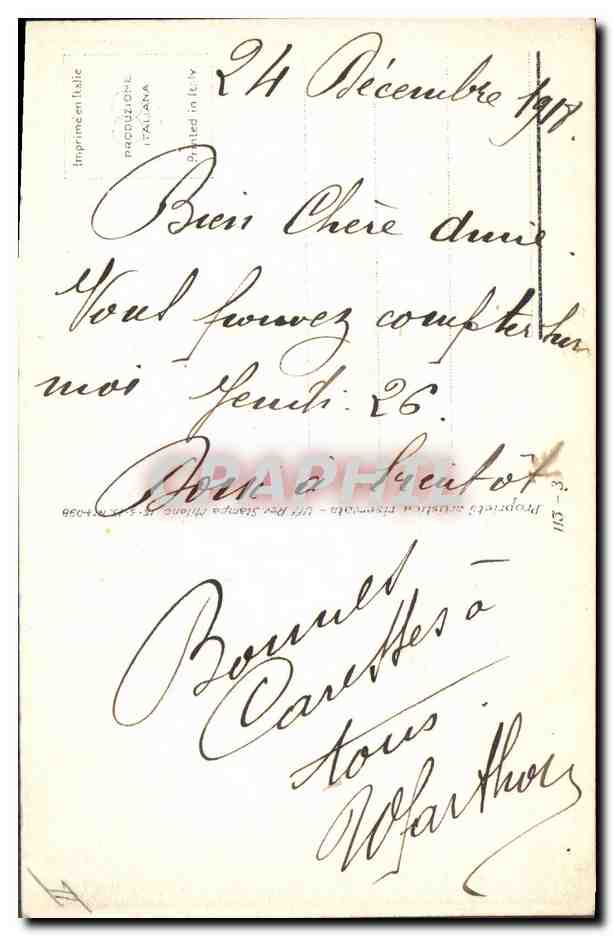 Imprimé en Italie
PRODUZIONE
ITALIANA
Printed in Italy
24 Décembre 1918.
Bien Chère Amie.
Vous pouvez compter sur
moi Jeudi. 26.
Donc à bientôt
CPAPHIL
Proprietà artistica riservata - Uff. Rev. Stampa Milano
115 - 3
Bonnes
Caresses à
tous.